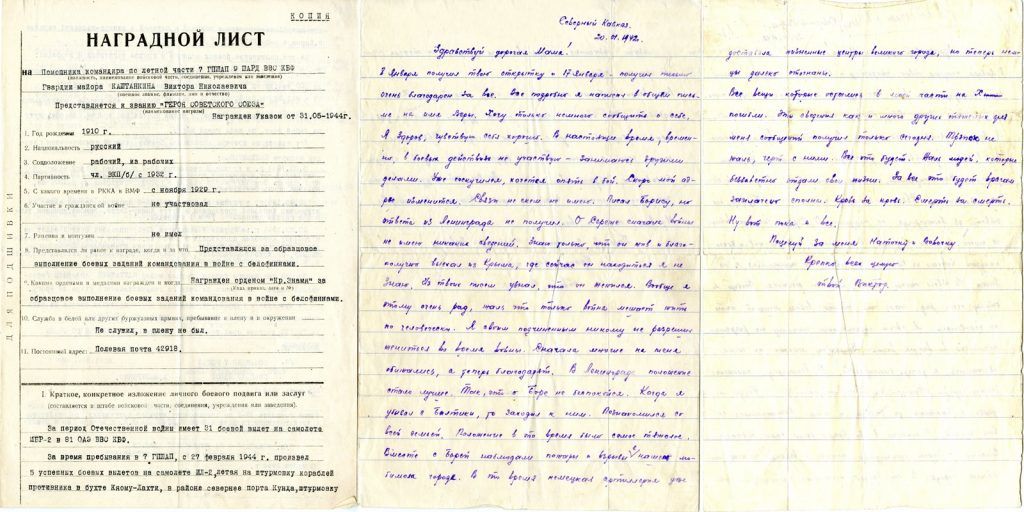 КОПИЯ
НАГРАДНОЙ ЛИСТ
на Помощника командира по летной части 7 ГПШАП 9 ШАРД ВВС КБФ
Гвардии майора КАШТАНКИНА Виктора Николаевича
Представляется к званию "ГЕРОЯ СОВЕТСКОГО СОЮЗА"
Награжден Указом от 31.05-1944г.
1. Год рождения 1910 г.
2. Национальность русский
3. Соцположение рабочий, из рабочих
4. Партийность чл. ВКП/б/ с 1932 г.
5. С какого времени в РККА и ВМФ с ноября 1929 г.
6. Участие в гражданской войне не участвовал
7. Ранения и контузии не имел
8. Представлялся ли ранее к награде, когда и за что Представлялся за образцовое
выполнение боевых заданий командования в войне с белофиннами.
9. Какими орденами и медалями награжден и когда Награжден орденом "Кр.Знамя" за
образцовое выполнение боевых заданий командования в войне с белофиннами.
10. Служба в белой или других буржуазных армиях, пребывание в плену и в окружении
Не служил, в плену не был.
11. Постоянный адрес: Полевая почта 42918.
1. Краткое, конкретное изложение личного боевого подвига или заслуг
(составляется в штабе войсковой части, соединения, учреждения или заведения).
За период Отечественной войны имеет 31 боевой вылет на самолете
МБР-2 в 81 ОАЭ ВВС КБФ.
За время пребывания в 7 ГПШАП, с 27 февраля 1944 г. произвел
5 успешных боевых вылетов на самолете ИЛ-2, летая на штурмовку кораблей
противника в бухте Кясму-Лахти, в районе севернее порта Кунда, штурмовку
ДЛЯ ПОДШИВКИ
Северный Кавказ.
20.01.1942.
Здравствуй дорогая Мама!
8 января получил твою открытку и 17 января - получил письмо
очень благодарен за все. Все подробно я написал в общем пись-
ме на имя Веры. Хочу только немного сообщить о себе.
Я здоров, чувствую себя хорошо. В настоящее время, времен-
но, в боевых действиях не участвую - занимаюсь другими
делами. Уже соскучился, хочется опять в бой. Скоро мой ад-
рес изменится. Связи ни с кем не имею. Писал Борису, но
ответа из Ленинграда не получил. О Сереже сначала войны
не имею никаких сведений. Знаю только, что он жив и благо-
получно выехал из Крыма, где сейчас он находиться я не
знаю. Из твоих писем узнал, что он женился. Вообще я
этому очень рад, жаль что только война мешает жить
по человечески. Я своим подчиненным никому не разрешил
жениться во время войны. Сначала многие на меня
обижались, а теперь благодарят. В Ленинграде положение
стало лучше. Так, что о Боре не беспокойся. Когда я
уезжал с Балтики, то заходил к ним. Познакомился со
всей семьей. Положение в то время было самое тяжелое.
Вместе с Борей наблюдали пожары и взрывы в нашем лю-
бимом городе. В то время немецкая артиллерия уже
доставала жизненные центры великого города, но теперь нем-
цы далеко отогнаны.
Все вещи которые остались в части на
погибли. Эти сведения как и много других тяжелых для
меня сообщений получил только сегодня. Тряпок не
жаль, черт с ними. Все это будет. Жаль людей, которые
беззаветно отдали свои жизни. За все это будет врагам
заплачено сполна. Кровь за кровь. Смерть за смерть.
Ну вот пока и все.
Поцелуй за меня Наташу и Вовочку
Крепко всех целую
твой Виктор.